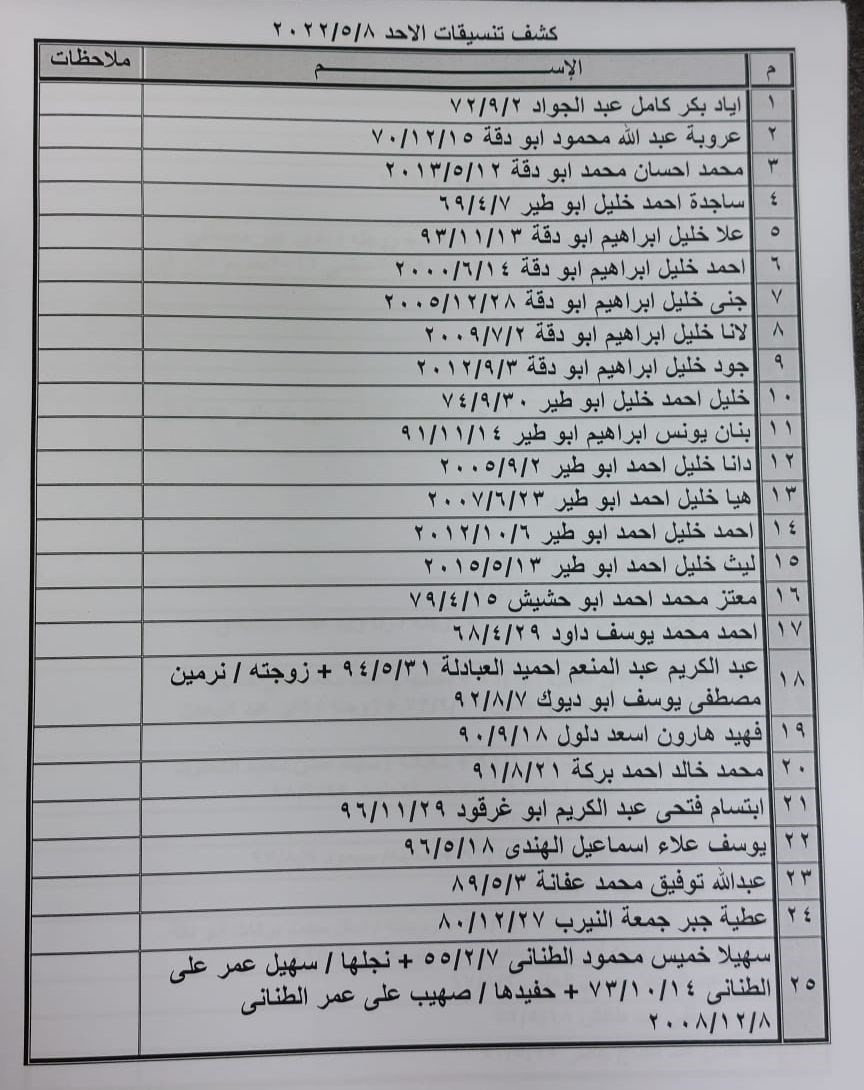 كشف تنسيقات الاحد ٢٠٢٢/٥/٨
م الإســـــــــم ملاحظات
١ اياد بكر كامل عبد الجواد ٧٢/٩/٢
٢ عروبة عبد الله محمود ابو دقة ٧٠/١٢/١٥
٣ محمد احسان محمد ابو دقة ٢٠١٣/٥/١٢
٤ ساجدة احمد خليل ابو طير ٦٩/٤/٧
٥ علا خليل ابراهيم ابو دقة ٩٣/١١/١٣
٦ احمد خليل ابراهيم ابو دقة ٢٠٠٠/٦/١٤
٧ جنى خليل ابراهيم ابو دقة ٢٠٠٥/١٢/٢٨
٨ لانا خليل ابراهيم ابو دقة ٢٠٠٩/٧/٢
٩ جود خليل ابراهيم ابو دقة ٢٠١٢/٩/٣
١٠ خليل احمد خليل ابو طير ٧٤/٩/٣٠
١١ بنان يونس ابراهيم ابو طير ٩١/١١/١٤
١٢ دانا خليل احمد ابو طير ٢٠٠٥/٩/٢
١٣ هيا خليل احمد ابو طير ٢٠٠٧/٦/٢٣
١٤ احمد خليل احمد ابو طير ٢٠١٢/١٠/٦
١٥ ليث خليل احمد ابو طير ٢٠١٥/٥/١٣
١٦ معتز محمد احمد ابو حشيش ٧٩/٤/١٥
١٧ احمد محمد يوسف داود ٦٨/٤/٢٩
١٨ عبد الكريم عبد المنعم احميد العبادلة ٩٤/٥/٣١ + زوجته / نرمين
مصطفى يوسف ابو ديوك ٩٢/٨/٧
١٩ فهيد هارون اسعد دلول ٩٠/٩/١٨
٢٠ محمد خالد احمد بركة ٩١/٨/٢١
٢١ ابتسام فتحى عبد الكريم ابو غرقود ٩٦/١١/٢٩
٢٢ يوسف علاء اسماعيل الهندى ٩٦/٥/١٨
٢٣ عبدالله توفيق محمد عفانة ٨٩/٥/٣
٢٤ عطية جبر جمعة النيرب ٨٠/١٢/٢٧
٢٥ سهيلا خميس محمود الطنانى ٥٥/٢/٧ + نجلها / سهيل عمر على
الطنانى ٧٣/١٠/١٤ + حفيدها / صهيب على عمر الطنانى
٢٠٠٨/١٢/٨